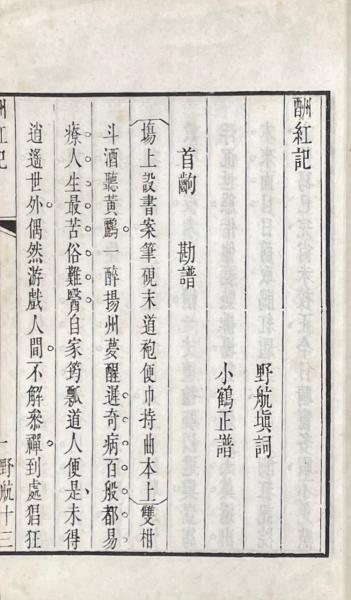 酬紅記
野航塡詞
小鶴正譜
首齣　勘譜
﹝塲上設書案筆硯末道袍便巾持曲本上﹞雙柑
斗酒聽黃鸝一醉揚州夢醒遲奇病百般都易
療人生最苦俗難醫自家箹瓢道人便是未得
逍遙世外偶然游戲人間不解叅禪到處猖狂
酬紅記
一
野航十三